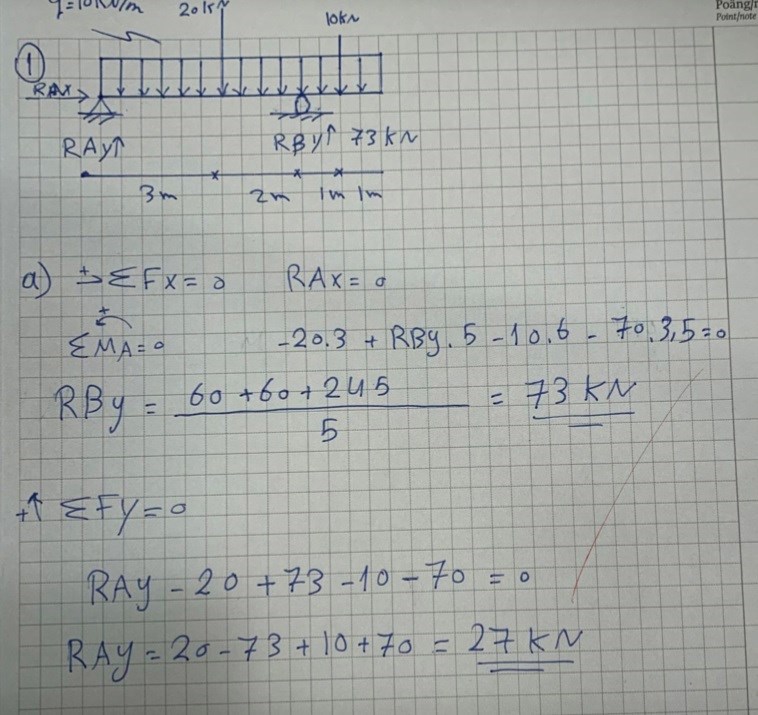 Poäng/
Point/note
q=10kN/m 20kN 10kN
1
RAx
RAy↑ RBy↑ 73 kN
3m 2m 1m 1m
a) +→ ΣFx = 0 RAx = 0
+
ΣMA=0 -20.3 + RBy.5 -10.6 - 70.3,5=0
RBy = 60+60+245 / 5 = 73 kN
+↑ ΣFy=0
RAy - 20 + 73 - 10 - 70 = 0
RAy = 20 - 73 + 10 + 70 = 27 kN